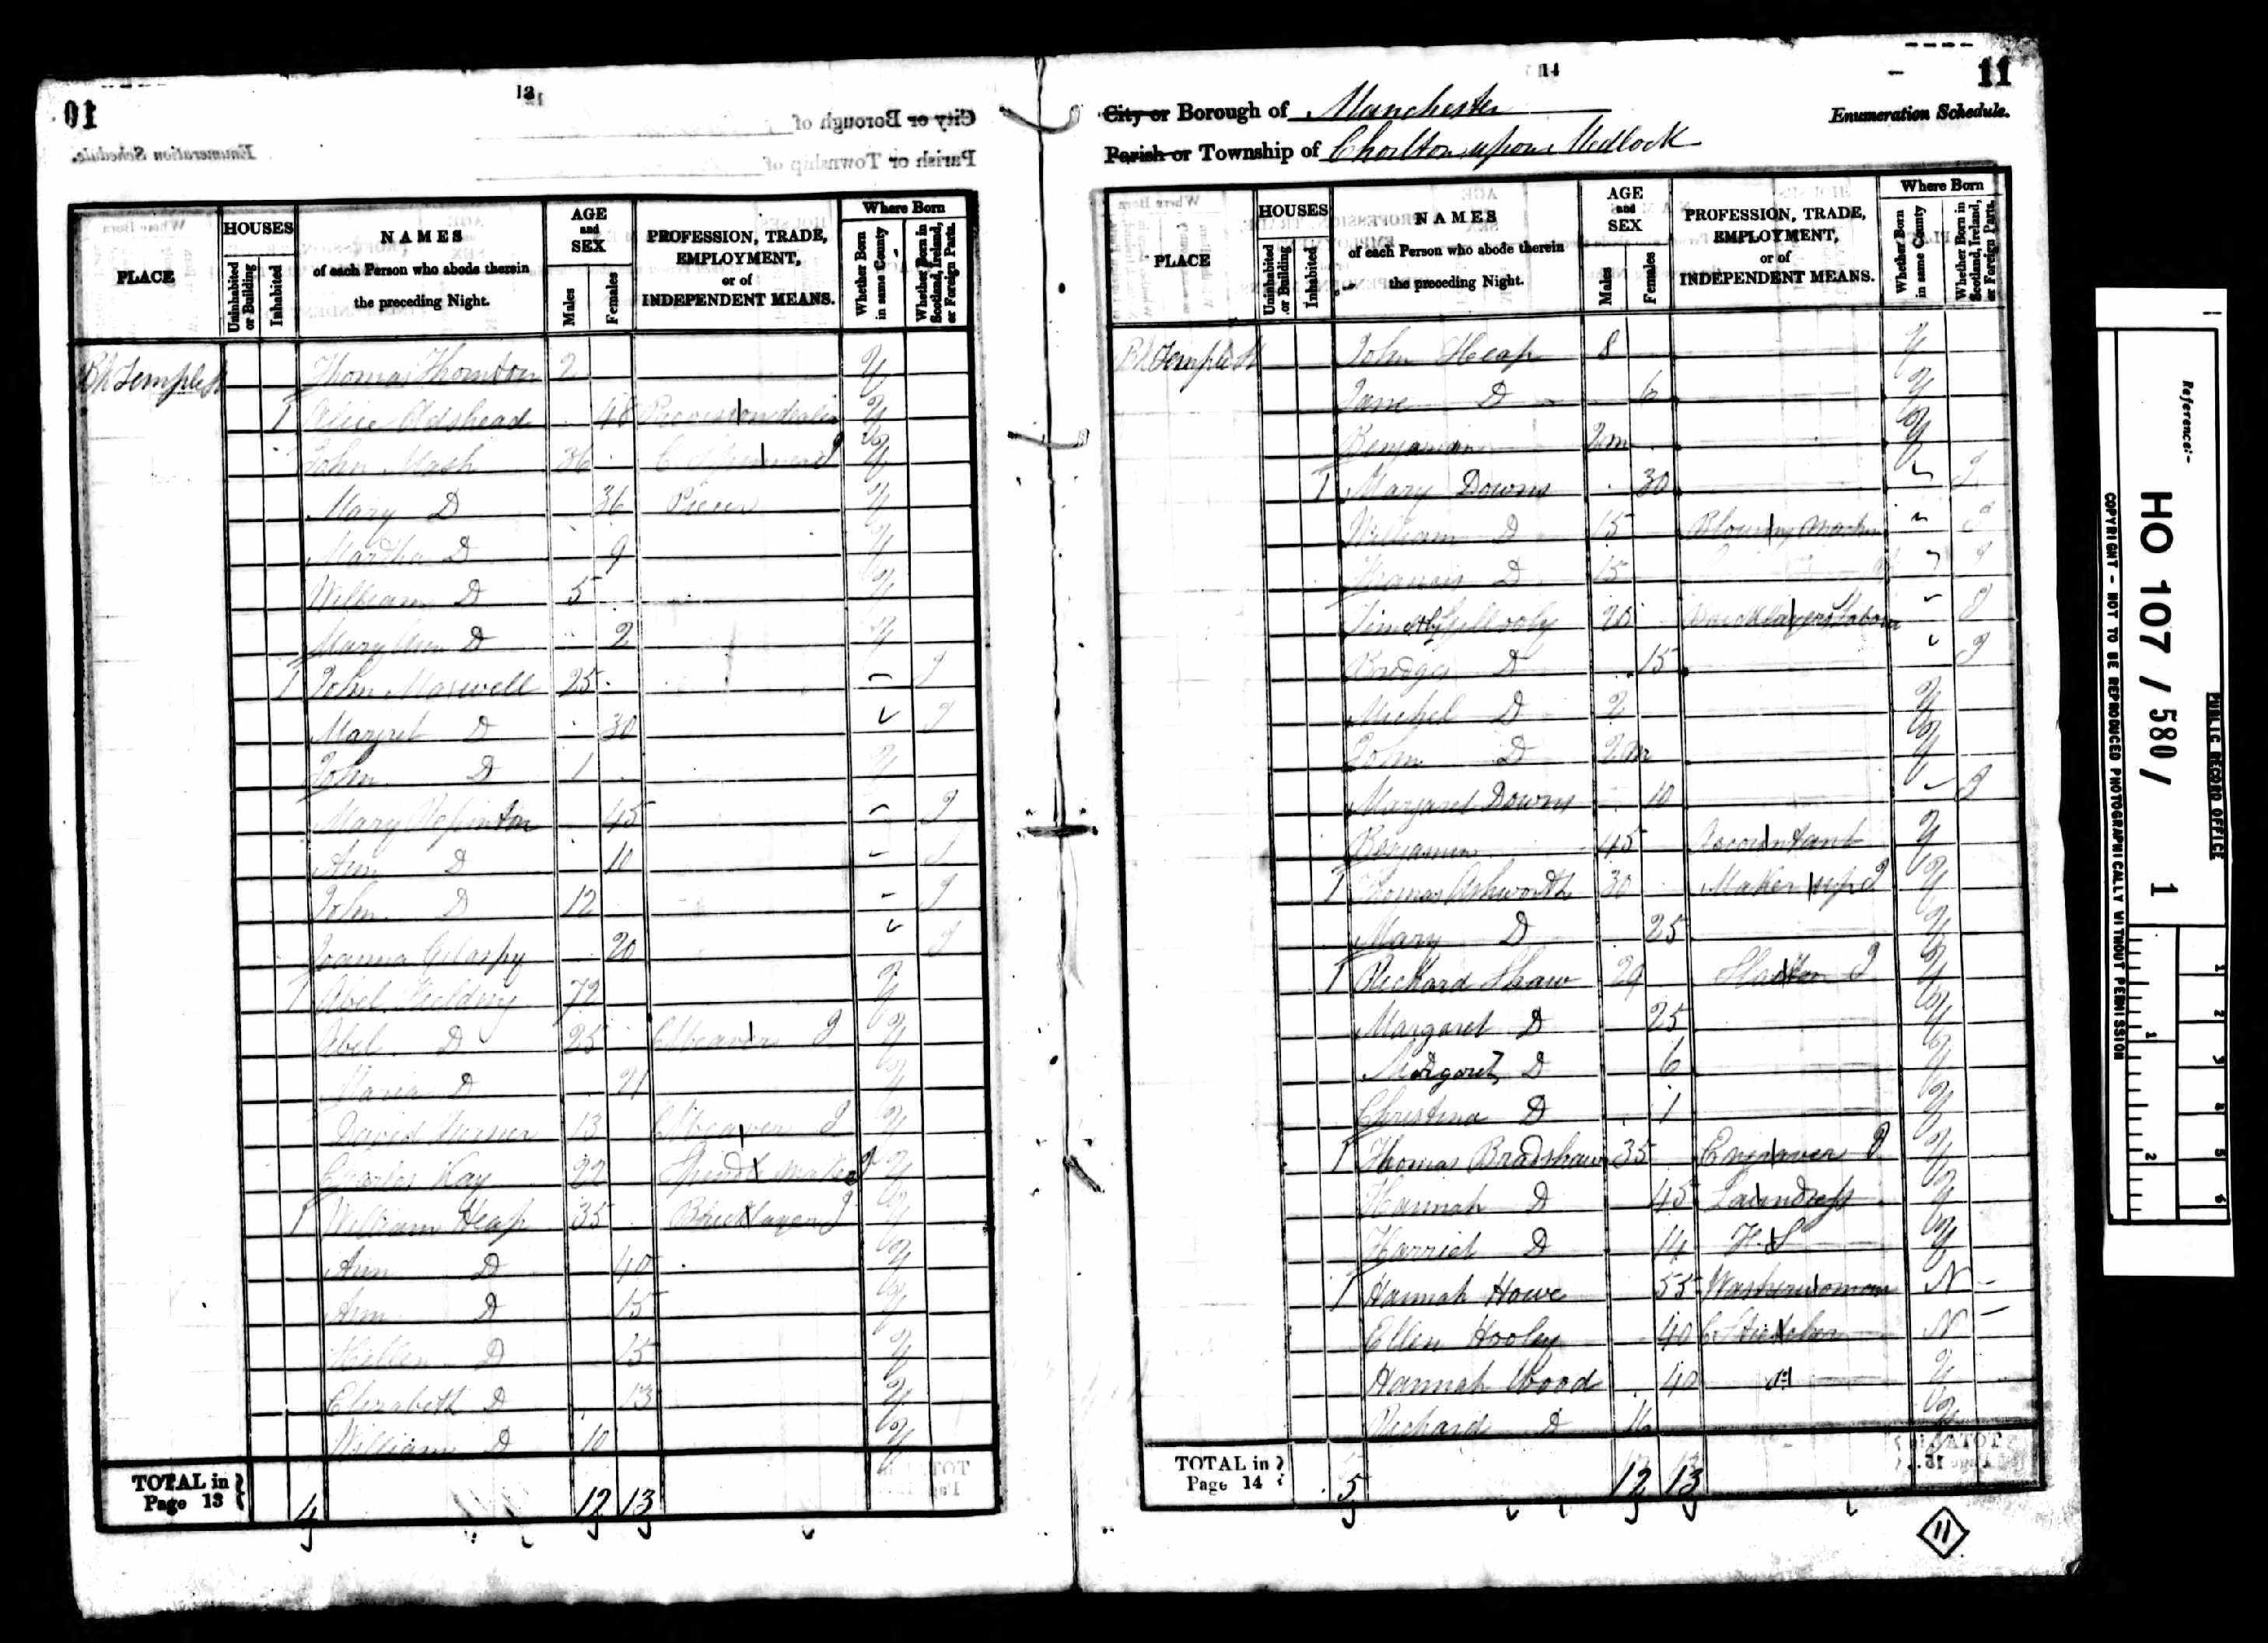 10
13
PLACE
HOUSES
Uninhabited or Building
Inhabited
NAMES
of each Person who abode therein
the preceding Night.
AGE
and
SEX
Males
Females
PROFESSION, TRADE,
EMPLOYMENT,
or of
INDEPENDENT MEANS.
Where Born
Whether Born in same County
Whether Born in Scotland, Ireland, or Foreign Parts.
Thomas Thornton 2 Y
1 Alice Oldshead 48 Provision dealer Y
John Mash 36 Y
Mary D 36 Y
Martha D 9 Y
William D 5 Y
Mary Ann D 2 Y
1 John Maxwell 25 I
Margret D 30 I
John D 1 Y
Mary 45 I
Ann D 10 I
John D 12 I
Joanna 20 I
1 Abel Fielding 72 Y
Abel D 25 C Weaver J Y
Maria D 21 Y
David Turner 13 C Weaver J Y
Charles Kay 22 Y
1 William Heap 35 Bricklayer J Y
Ann D 40 Y
Ann D 15 Y
Hellen D 15 Y
Elizabeth D 13 Y
William D 10 Y
TOTAL in
Page 13 4 12 13
14
11
City or Borough of Manchester
Enumeration Schedule.
Parish or Township of Chorlton upon Medlock
PLACE
HOUSES
Uninhabited or Building
Inhabited
NAMES
of each Person who abode therein
the preceding Night.
AGE
and
SEX
Males
Females
PROFESSION, TRADE,
EMPLOYMENT,
or of
INDEPENDENT MEANS.
Where Born
Whether Born in same County
Whether Born in Scotland, Ireland, or Foreign Parts.
John Heap 8 Y
Jane D 6 Y
Benjamin 2m Y
1 Mary Downs 30 I
William D 15 I
Francis D 15 I
20 Bricklayers Labour I
Bridget D 15 I
Michel D 2 Y
John D 2m Y
Margaret Downs 10 I
Benjamin 45 Accountant Y
1 Thomas Ashworth 30 Maker up J Y
Mary D 25 Y
1 Richard Shaw 29 J Y
Margaret D 25 Y
Margaret D 6 Y
Christina D 1 Y
1 Thomas Bradshaw 35 Engraver J Y
Hannah D 45 Laundress Y
Harriet D 14 F.S Y
1 Hannah Howe 55 Washerwoman N
Ellen Hooley 40 N
Hannah Wood 40 Y
Richard D Y
TOTAL in
Page 14 5 12 13
11
Reference:-
HO 107 / 580 / 1
PUBLIC RECORD OFFICE
COPYRIGHT - NOT TO BE REPRODUCED PHOTOGRAPHICALLY WITHOUT PERMISSION